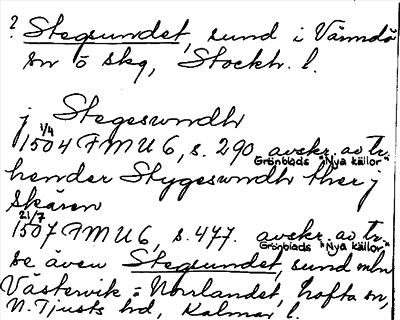 ? Stegsundet, sund i Värmdö
sn o skg, Stockh. l.
j Stegeswndh
1/4
1504 FMU 6, s. 290 avskr. av tr.
Grönblads "Nya källor"
hender Stygeswndh ther j
skären
21/7
1507 FMU 6, s. 477. avskr. av tr.
Grönblads "Nya källor"
se även Stegsundet, sund mln
Västervik o Norrlandet, Lofta sn,
N. Tjusts hd, Kalmar l.